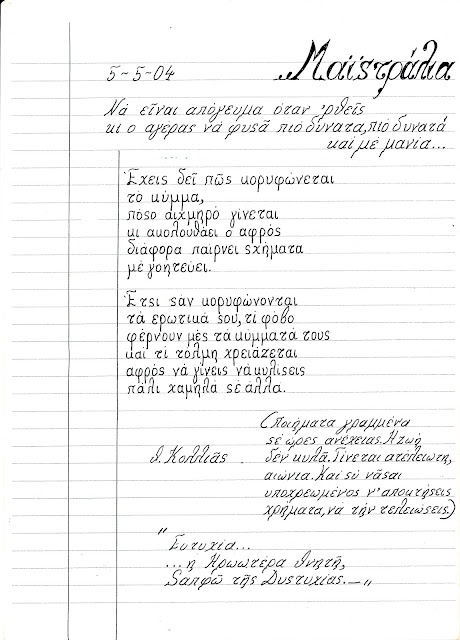 5-5-04 Μαϊστράλια
Νὰ εἶναι απόγευμα όταν 'ρθεῖς
κι ο αγέρας νὰ φυςᾶ πιὸ δυνατα, πιὸ δυνατά
καὶ μὲ μανία...
Ἔχεις δεῖ πῶς κορυφώνεται
τὸ κύμμα,
πόσο αιχμηρό γίνεται
κι ακολουθάει ο αφρὸς
διάφορα παίρνει σχήματα
μὲ γοητεύει.
Ἔτσι σὰν κορυφώνονται
τὰ ερωτικά σου, τί φόβο
φέρνουν μὲς τὰ κύμματά τους
καὶ τί τόλμη χρειάζεται
αφρὸς νὰ γίνεις νὰ κυλίσεις
πάλι χαμηλὰ σὲ άλλα.
(Ποιήματα γραμμένα
σὲ ώρες ανέχειας. Η ζωὴ
Θ. Κολλιᾶς δὲν κυλᾶ. Γίνεται ατέλειωτη,
αιώνια. Καὶ σὺ νἆσαι
υποχρεωμένος ν' αποκτήσεις
χρήματα, να τὴν τελειώσεις)
"Ευτυχία...
...η Ηρωωτέρα Θνητὴ,
Σαπφώ τῆς Δυστυχίας.—"